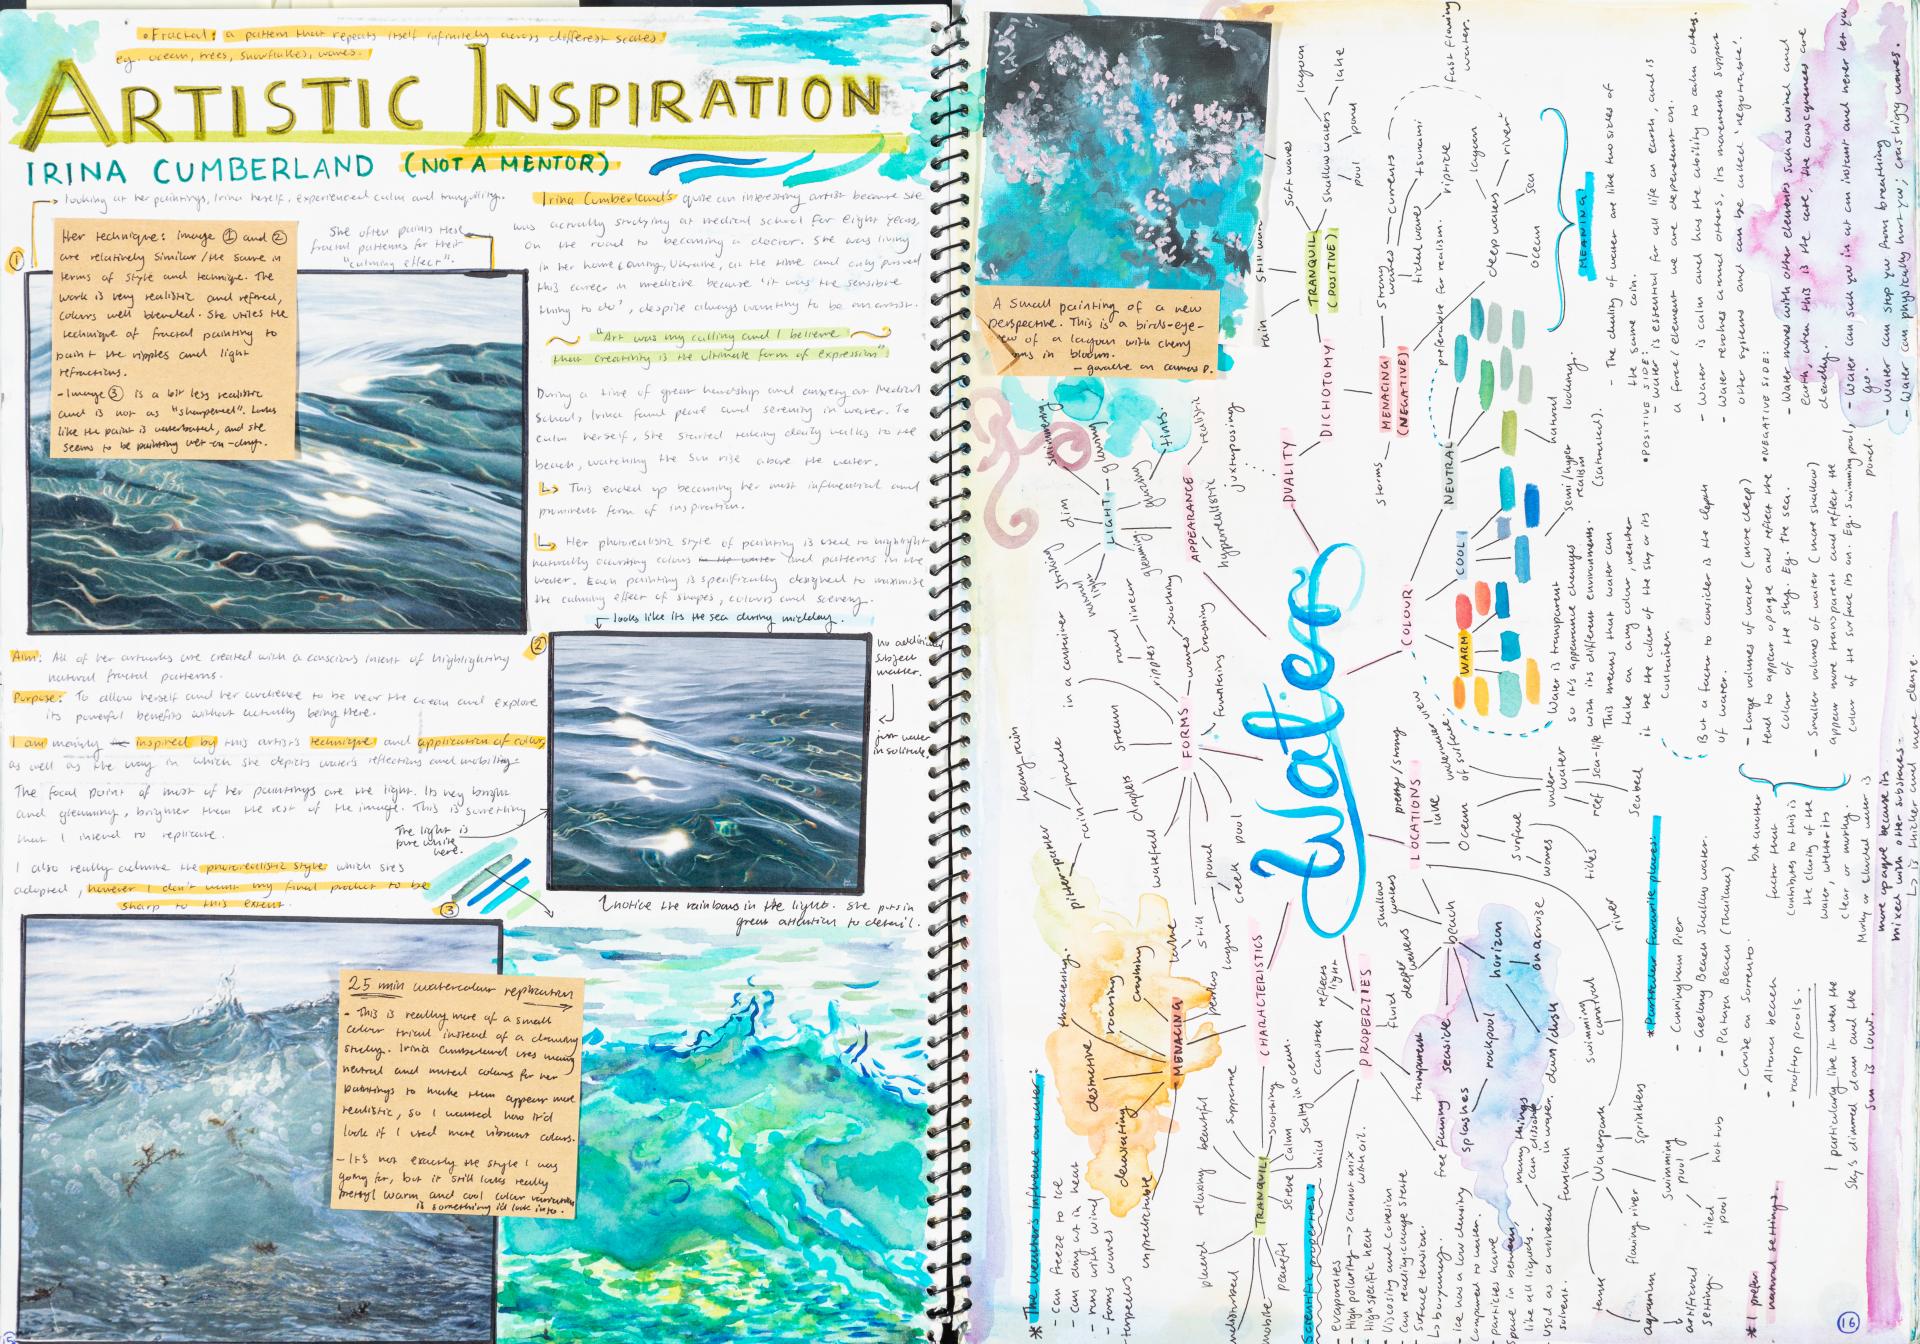 • Fractal: a pattern that repeats itself infinitely across different scales.
eg. ocean, trees, snowflakes, waves.
ARTISTIC INSPIRATION
IRINA CUMBERLAND (NOT A MENTOR)
looking at her paintings, Irina herself, experienced calm and tranquility.
①
Her technique: image ① and ②
are relatively similar/the same in
terms of style and technique. The
work is very realistic and refined,
colours well blended. She utilises the
technique of fractal painting to
paint the ripples and light
refractions.
- Image ③ is a bit less realistic
and is not as "sharpened". Looks
like the paint is waterbased, and she
seems to be painting wet-on-dry.
She often paints these
fractal patterns for their
"calming effect".
Irina Cumberland's quite an interesting artist because she
was actually studying at medical school for eight years,
on the road to becoming a doctor. She was living
in her home country, Ukraine, at the time and only pursued
this career in medicine because 'it was the sensible
thing to do', despite always wanting to be an artist.
"Art was my calling and I believe
that creativity is the ultimate form of expression"
During a time of great hardship and anxiety at Medical
School, Irina found peace and serenity in water. To
calm herself, she started taking daily walks to the
beach, watching the sun rise above the water.
↳ This ended up becoming her most influential and
prominent form of inspiration.
↳ Her photorealistic style of painting is used to highlight
naturally occurring colours in the water and patterns in the
water. Each painting is specifically designed to maximise
the calming effect of shapes, colours and scenery.
looks like its the sea during midday.
②
no additional
subject
matter.
just water
in solitude.
Aim: All of her artworks are created with a conscious intent of highlighting
natural fractal patterns.
Purpose: To allow herself and her audience to be near the ocean and explore
its powerful benefits without actually being there.
I am mainly inspired by this artist's technique and application of colour,
as well as the way in which she depicts water's reflections and mobility.
The focal point of most of her paintings are the light. Its very bright
and gleaming, brighter than the rest of the image. This is something
that I intend to replicate.
The light is
pure white
here.
I also really admire the photorealistic style which she's
adopted, however I don't want my final product to be
sharp to this extent.
③
notice the rainbows in the light. She puts in
great attention to detail.
25 min watercolour replication
- This is really more of a small
colour trial instead of a
study. Irina Cumberland uses many
neutral and muted colours for her
paintings to make them appear more
realistic, so I wanted how it'd
look if I used more vibrant colours.
- It's not exactly the style I was
going for, but it still looks really
pretty! Warm and cool colour variations
is something i'd look into.
A small painting of a new
perspective. This is a birds-eye-
view of a lagoon with cherry
in bloom.
- gouache on canvas P.
Water
DUALITY
DICHOTOMY
TRANQUIL
(POSITIVE)
rain
still water
soft waves
shallow waters
lagoon
lake
pond
pool
MENACING
(NEGATIVE)
storms
strong waves
currents
tidal waves
tsunami
riptide
deep waters
lagoon
river
sea
ocean
fast flowing
water.
APPEARANCE
realistic
juxtaposing
hyperrealistic
LIGHT
shimmering
glowing
tints
glistening
gleaming
natural light
striking
dim
FORMS
in a container
round
linear
ripples
soothing
waves
crashing
fountains
stream
droplets
rain
puddle
heavy rain
pitter-patter
waterfall
still
pond
pool
creek
lagoon
COLOUR
NEUTRAL
preferable for realism.
natural
looking.
COOL
semi/hyper
realism
(saturated).
WARM
Water is transparent
so it's appearance changes
with its different environments.
This means that water can
take on any colour, weather
it be the color of the sky or its
container
MEANING
- The duality of water are like two sides of
the same coin.
• POSITIVE SIDE:
- Water is essential for all life on earth, and is
a force/element we are dependent on.
- Water is calm and has the ability to calm others.
- Water revolves around others, its movements support
other systems and can be called 'negotiable'.
• NEGATIVE SIDE:
- Water moves with other elements such as wind and
earth, when this is the case, the consequences are
deadly.
- Water can suck you in at an instant and never let you
go.
- Water can stop you from breathing
- Water can physically hurt you; crashing waves.
But a factor to consider is the depth
of water.
- Large volumes of water (more deep)
tend to appear opaque and reflect the
colour of the sky. Eg. the sea.
- Smaller volumes of water (more shallow)
appear more transparent and reflect the
colour of the surface its on. Eg. swimming pool,
pond.
but another
factor that
contributes to this is
the clarity of the
water, wether its
clear or murky.
Murky or clouded water is
more opaque because its
mixed with other substances.
↳ is thicker and more dense.
LOCATIONS
pretty/strong view
underwater
of surface.
lake
Ocean
underwater
reef
sea-life
Seabed
surface
waves
tides
river
beach
shallow waters
deeper waters
seaside
rockpool
horizon
on a cruise
dawn/dusk
splashes
swimming
carnival
Waterpark
fountain
sprinkles
flowing river
swimming
pool
hot tub
tiled
pool
tank
aquarium
artificial
setting.
* Particular favourite places:
- Cunningham Pier
- Geelong Beach shallow water.
- Pataya Beach (Thailand)
- Cruise on Sorrento.
- Altona beach
- rooftop pools.
I particularly like it when the
sky's dimmed down and the
sun is low.
* I prefer
natural setting.
PROPERTIES
reflects
light
fluid
transparent
free flowing
many things
can dissolve
in water.
CHARACTERISTICS
MENACING
threatening.
roaring
crashing
destructive
devastating
unpredictable
TRANQUIL
supportive
soothing
calm
mild
serene
beautiful
relaxing
placid
peaceful
* The Weather's Influence on water:
- can freeze to ice
- can dry out in heat
- runs with wind
- forms waves
Scientific properties:
- evaporates
- High polarity → cannot mix
with oil.
- High specific heat
- Viscosity and cohesion
- Can readily change state
- Surface tension.
↳ buoyancy.
- Ice has a low density
compared to water.
- particles have
space in between,
like all liquids.
- Used as a universal
solvent.
16